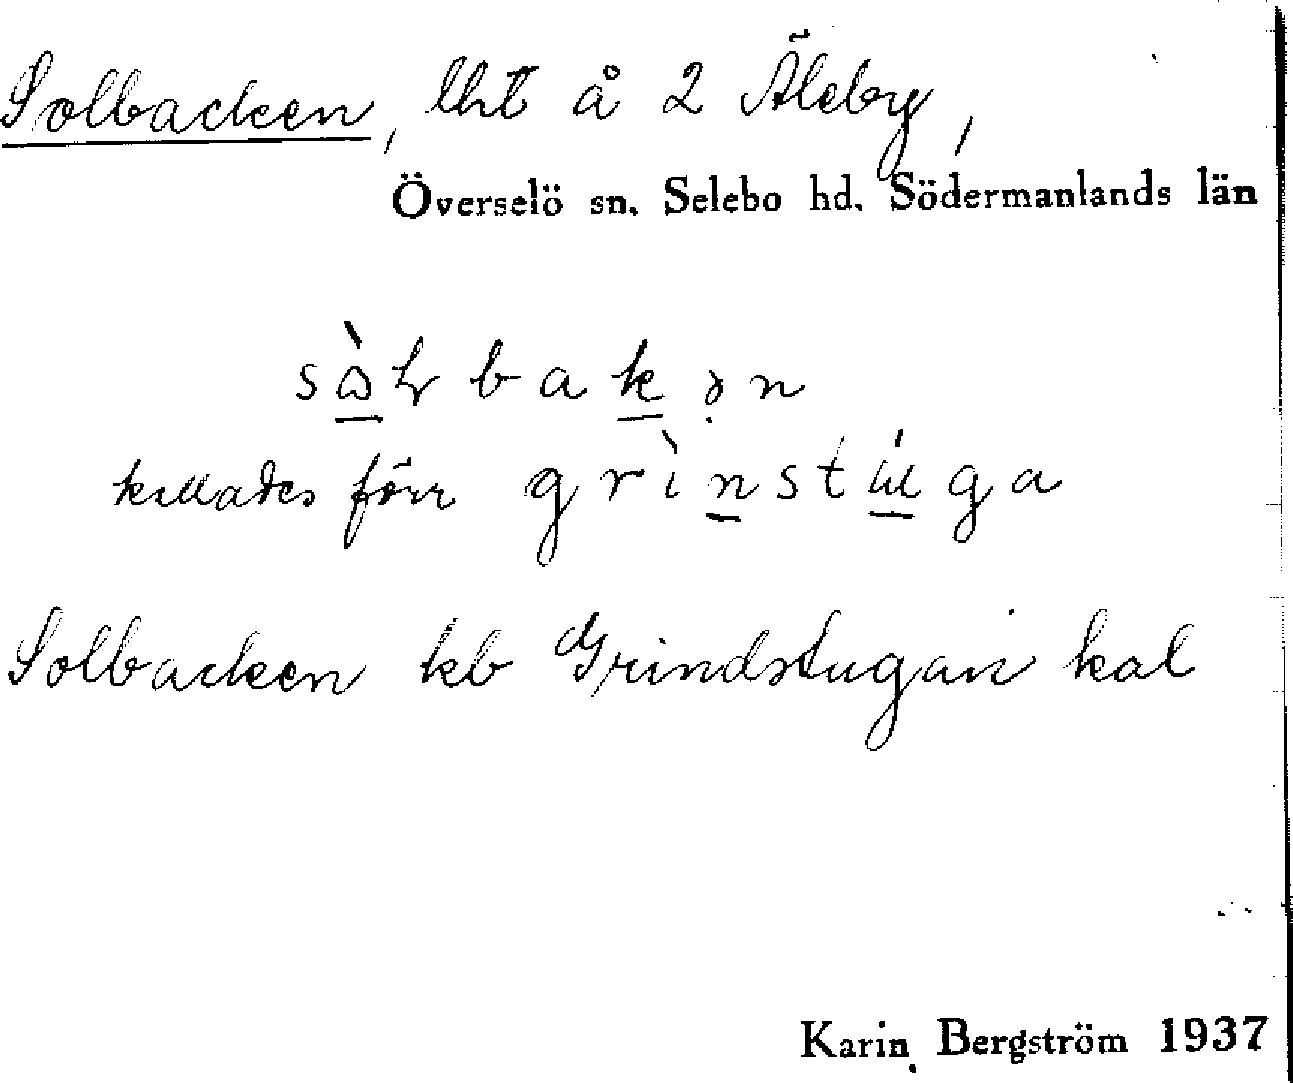 Solbacken, lht å 2 Äleby,
Överselö sn. Selebo hd. Södermanlands län
kallades förr grinstuga
Solbacken kb Grindstugan kal
Karin Bergström 1937